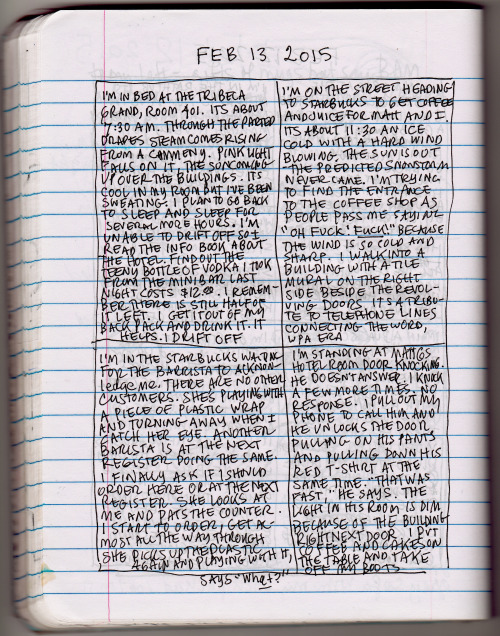 FEB 13 2015
I'M IN BED AT THE TRIBECA
GRAND, ROOM 401. ITS ABOUT
7:30 AM. THROUGH THE PARTED
DRAPES STEAM COMES RISING
FROM A CHIMENY. PINK LIGHT
FALLS ON IT. THE SUN COMING
UP OVER THE BUILDINGS. ITS
COOL IN MY ROOM BUT I'VE BEEN
SWEATING. I PLAN TO GO BACK
TO SLEEP AND SLEEP FOR
SEVERAL MORE HOURS. I'M
UNABLE TO DRIFT OFF SO I
READ THE INFO BOOK ABOUT
THE HOTEL. FIND OUT THE
TEENY BOTTLE OF VODKA I TOOK
FROM THE MINIBAR LAST
NIGHT COSTS $12.00. I REMEM-
BER THERE IS STILL HALF OF
IT LEFT. I GET IT OUT OF MY
BACK PACK AND DRINK IT. IT
HELPS. I DRIFT OFF
I'M ON THE STREET HEADING
TO STARBUCKS TO GET COFFEE
AND JUICE FOR MATT AND I.
ITS ABOUT 11:30 AN ICE
COLD WITH A HARD WIND
BLOWING. THE SUN IS OUT
THE PREDICTED SNOWSTORM
NEVER CAME. I'M TRYING
TO FIND THE ENTRANCE
TO THE COFFEE SHOP AS
PEOPLE PASS ME SAYING
"OH FUCK! FUCK!" BECAUSE
THE WIND IS SO COLD AND
SHARP. I WALK INTO A
BUILDING WITH A TILE
MURAL ON THE RIGHT
SIDE BESIDE THE REVOL-
VING DOORS. IT'S A TRIBU-
TE TO TELEPHONE LINES
CONNECTING THE WORD,
WPA ERA
I'M IN THE STARBUCKS WAITING
FOR THE BARRISTA TO ACKNOW-
LEDGE ME. THERE ARE NO OTHER
CUSTOMERS. SHES PLAYING WITH
A PIECE OF PLASTIC WRAP
AND TURNING AWAY WHEN I
CATCH HER EYE. ANOTHER
BARISTA IS AT THE NEXT
REGISTER DOING THE SAME.
I FINALLY ASK IF I SHOULD
ORDER HERE OR AT THE NEXT
REGISTER. SHE LOOKS AT
ME AND PATS THE COUNTER.
I START TO ORDER, GET AL-
MOST ALL THE WAY THROUGH
SHE PICKS UP THE PLASTIC
AGAIN AND PLAYING WITH IT,
SAYS "WHAT?"
I'M STANDING AT MATT'S
HOTEL ROOM DOOR KNOCKING.
HE DOESN'T ANSWER. I KNOCK
A FEW MORE TIMES. NO
RESPONSE. I PULL OUT MY
PHONE TO CALL HIM AND
HE UNLOCKS THE DOOR,
PULLING ON HIS PANTS
AND PULLING DOWN HIS
RED T-SHIRT AT THE
SAME TIME. "THAT WAS
FAST," HE SAYS. THE
LIGHT IN HIS ROOM IS DIM
BECAUSE OF THE BUILDING
RIGHT NEXT DOOR. I PUT
COFFEE AND CAKES ON
THE TABLE AND TAKE
OFF MY BOOTS